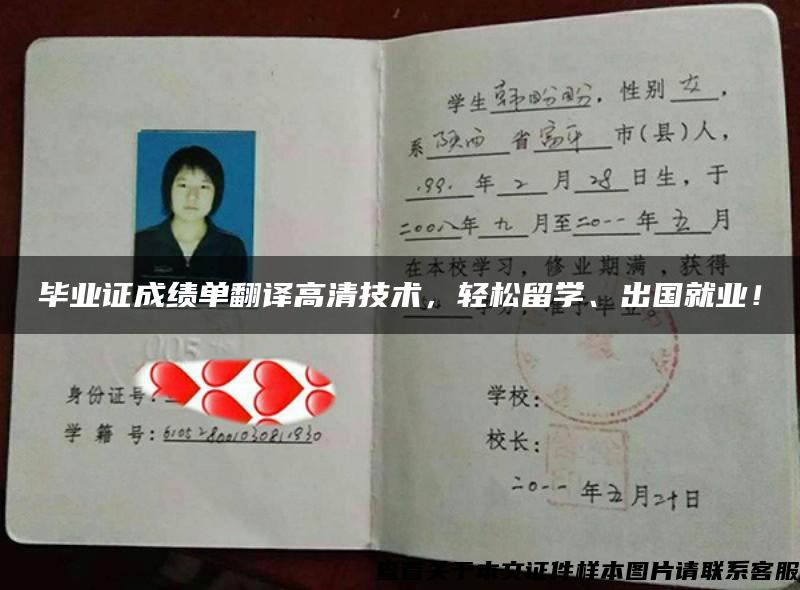 学生韩盼盼，性别女，
系陕西省富平市(县)人，
1991年2月28日生，于
二00八年九月至二0一一年五月
在本校学习，修业期满，获得
毕业证成绩单翻译高清技术，轻松留学、出国就业！
学分，准予毕业。
005
身份证号：
学籍号：
学校：
校长：
二0一一年五月二十日
查看关于本文证件样本图片请联系客服